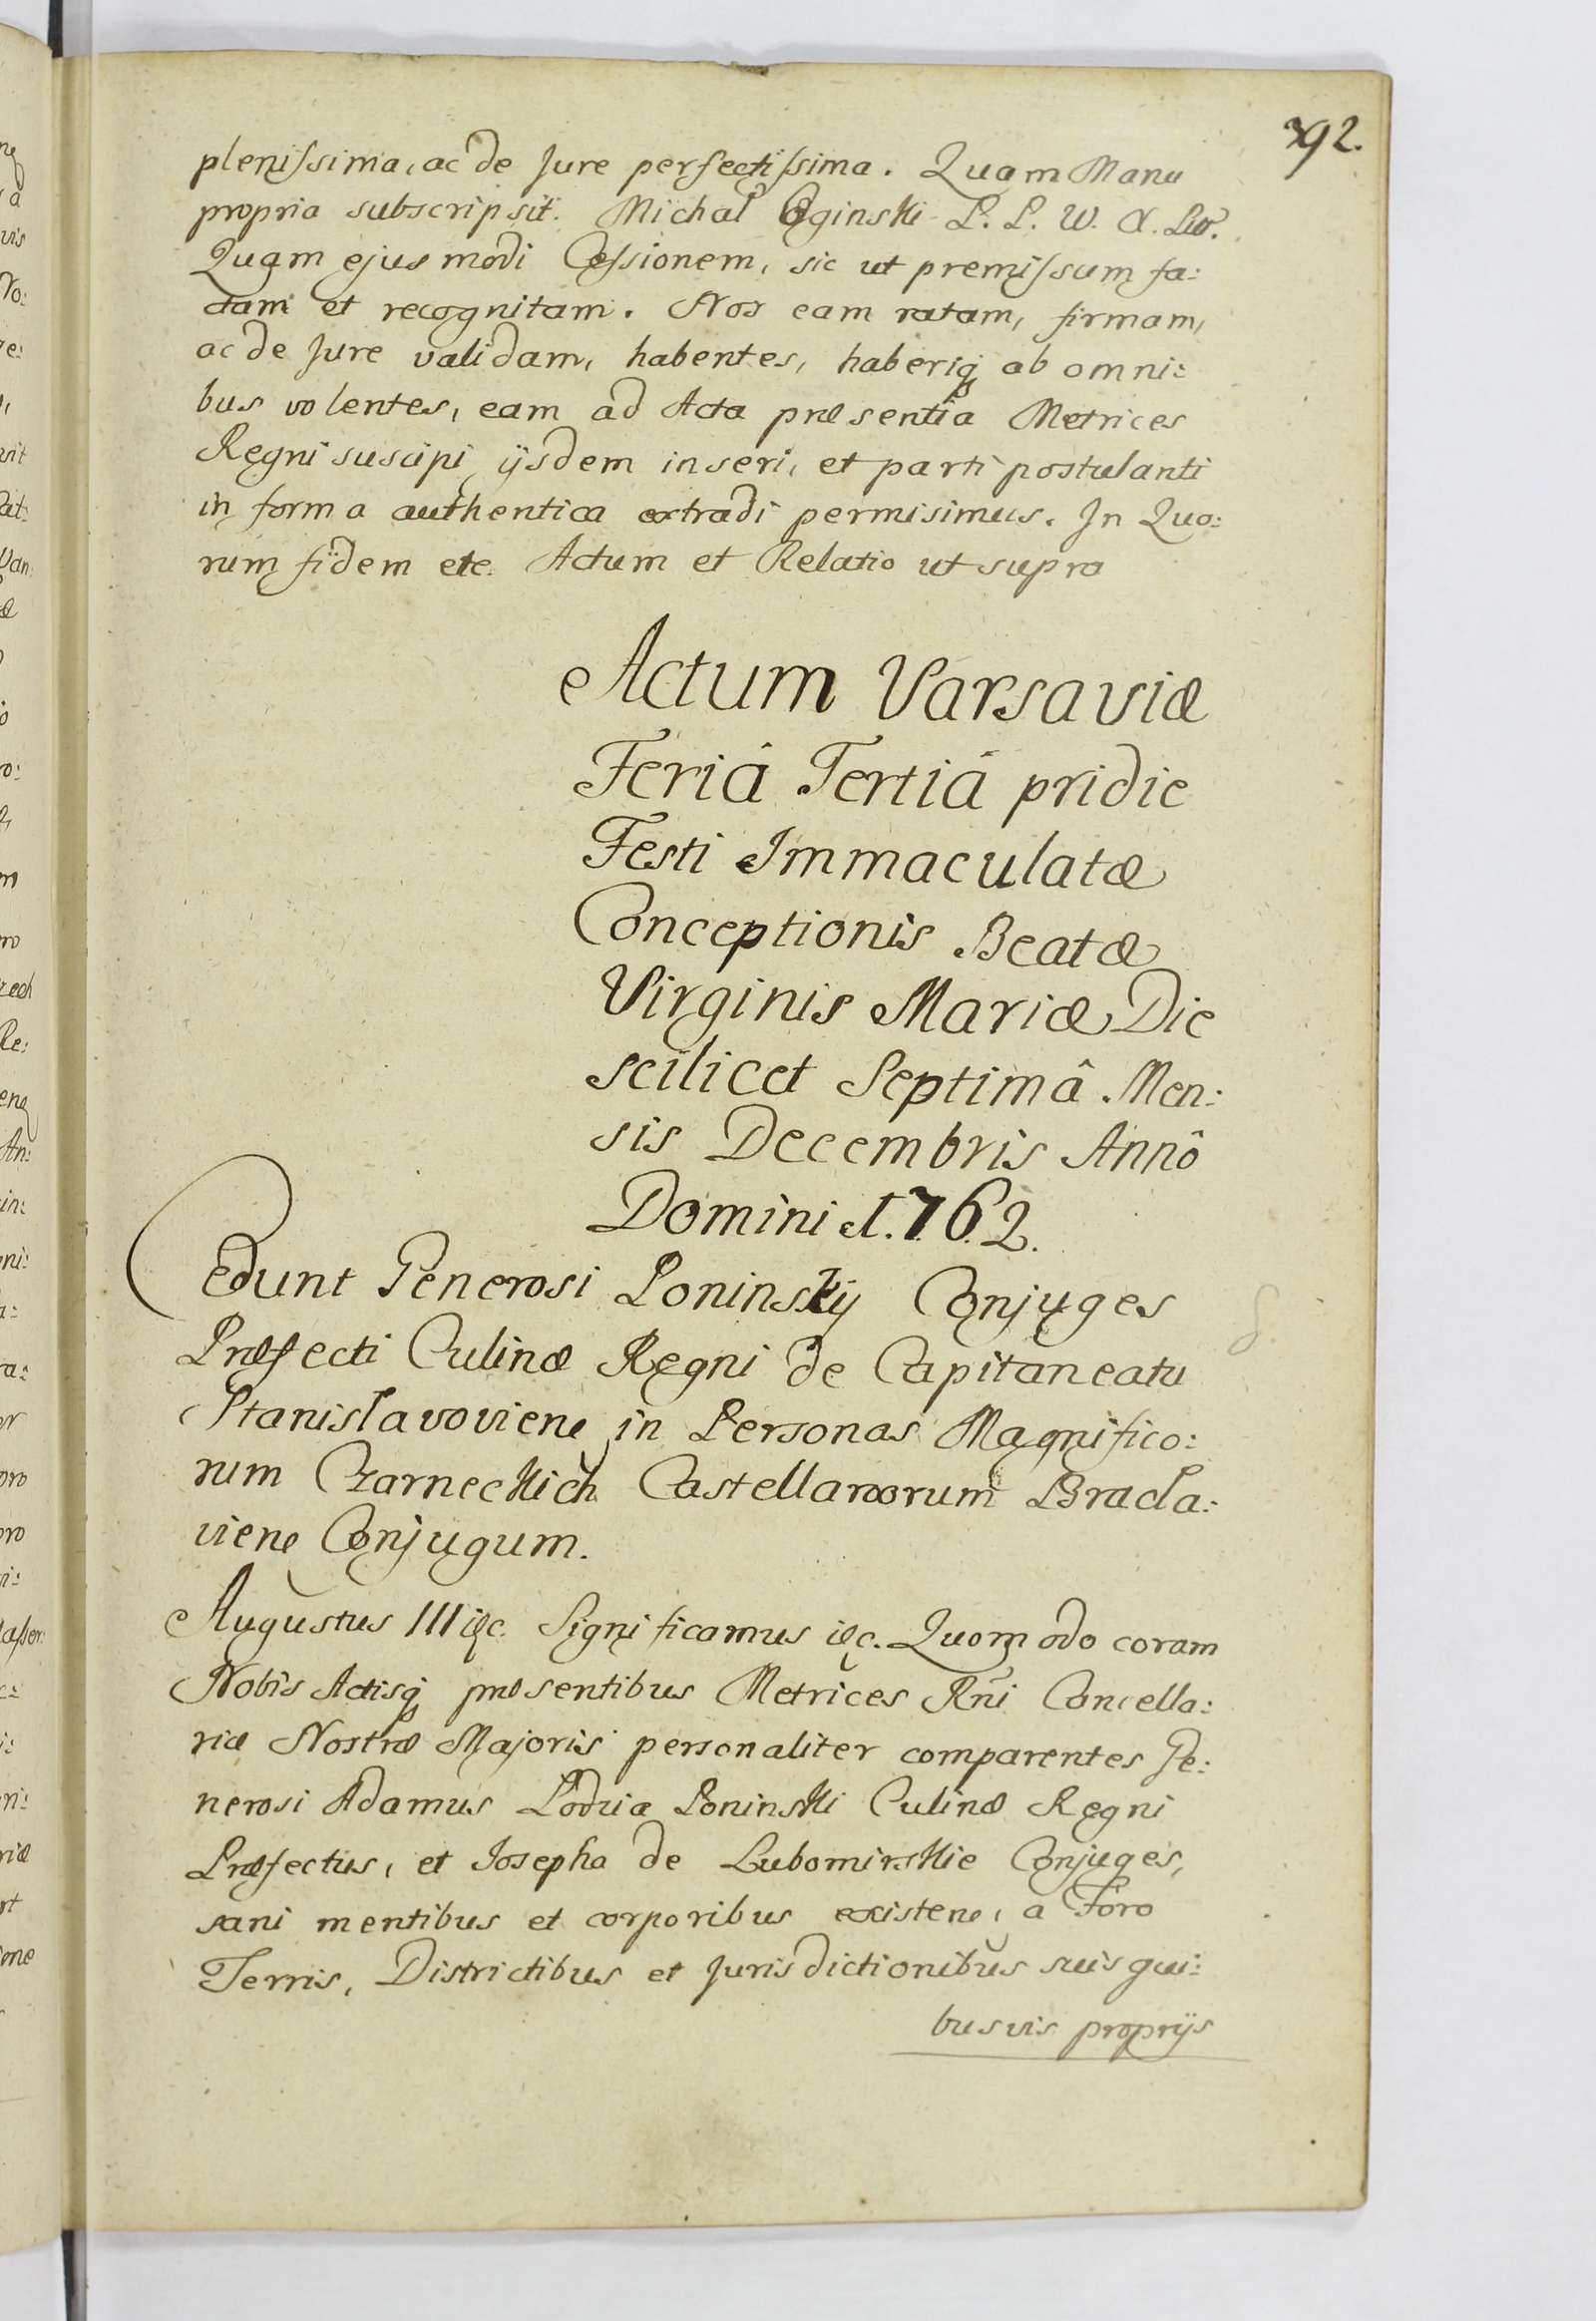 392.
plenissima, ac de Jure perfectissima. Quam Manu
propria subscripsit. Michal Oginski P. P. W. X. Litt.
Quam ejusmodi Cessionem, sic ut premissum fa:
ctam et recognitam. Nos eam ratam, firmam,
ac de Jure validam, habentes, haberiq ab omni:
bus volentes, eam ad Acta præsentia Metrices
Regni suscipi ijsdem inseri, et parti postulanti
in forma authentica extradi permisimus. In Quo:
rum fidem etc. Actum et Relatio ut supra
Actum Varsaviæ
Feriâ Tertiâ pridie
Festi Immaculatæ
Conceptionis Beatæ
Virginis Mariæ Die
scilicet Septimâ Men:
sis Decembris Annô
Domini 1762.
Cedunt Generosi Poninskij Conjuges
Præfecti Culinæ Regni de Capitaneatu
Stanislavovien in Personas Magnifico:
rum Czarneckich Castellanorum Bracla:
vien Conjugum.
Augustus III etc. Significamus etc. Quomodo coram
Nobis Actisq præsentibus Metrices Rni Cancella:
riæ Nostræ Majoris personaliter comparentes Ge:
nerosi Adamus Lodzia Poninski Culinæ Regni
Præfectus, et Josepha de Lubomirskie Conjuges,
sani mentibus et corporibus existen, a Foro
Terris, Districtibus et Jurisdictionibus suis qui:
busvis proprijs